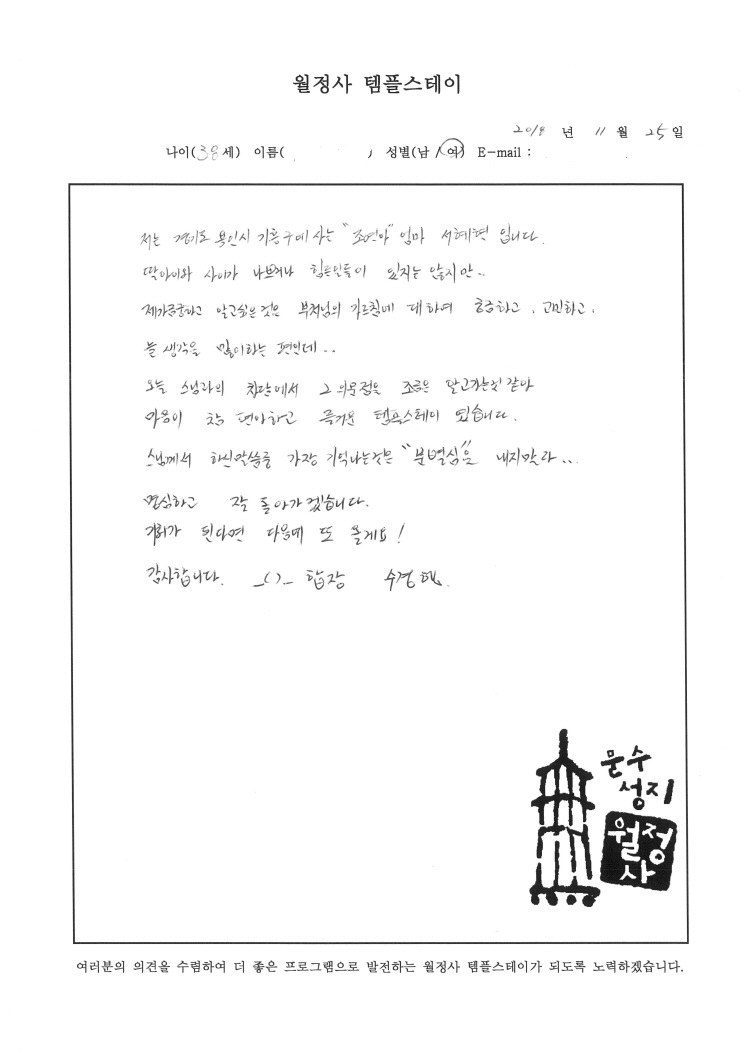 월정사 템플스테이
2018 년 11 월 25 일
나이(38 세) 이름( ) 성별(남 / 여) E-mail :
저는 경기도 용인시 기흥구에 사는 "조연아" 엄마 서혜현 입니다.
딸아이와 사이가 나쁘거나 힘든일들이 있지는 않지만..
제가궁금하고 알고싶은 것은 부처님의 가르침에 대하여 궁금하고, 고민하고,
늘 생각을 많이하는 편인데..
오늘 스님과의 차담에서 그 의문점을 조금은 알고가는것 같아
마음이 참 편안하고 즐거운 템플스테이 였습니다.
스님께서 하신말씀중 가장 기억나는것은 "분별심"을 내지말라...
명심하고 잘 돌아가겠습니다.
기회가 된다면 다음에 또 올게요!
감사합니다. _()_ 합장
문수
성지
월정
사
여러분의 의견을 수렴하여 더 좋은 프로그램으로 발전하는 월정사 템플스테이가 되도록 노력하겠습니다.